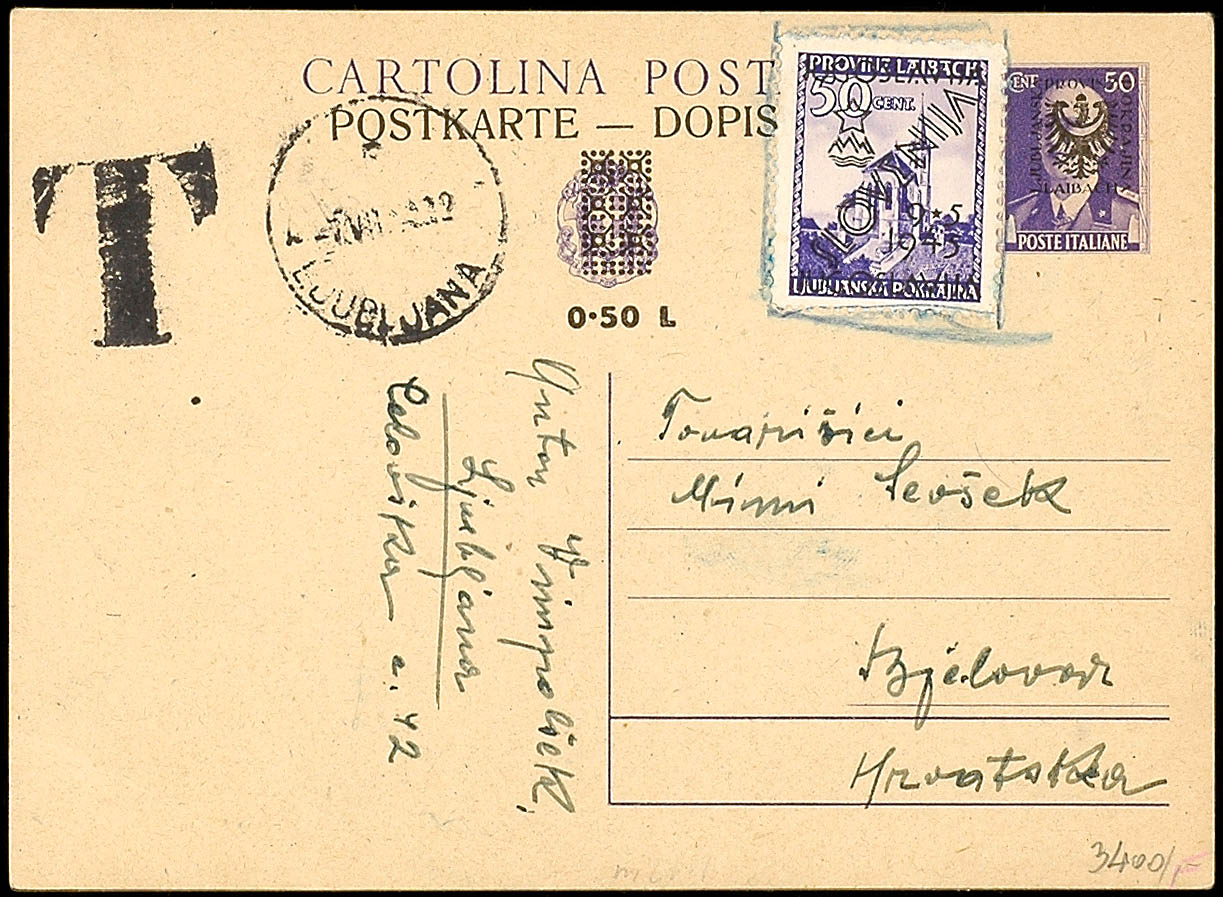 CARTOLINA POST
POSTKARTE — DOPIS
T
LJUBLJANA
0·50 L
PROVINZ LAIBACH
50 CENT.
JUGOSLAVIJA
SLOVENIJA
9★5
1945
JUGOSLAVIJA
LJUBLJANSKA POKRAJINA
CENT 50
PROVINZ
LAIBACH
LJUBLJANSKA
POKRAJINA
POSTE ITALIANE
Tovarišici
Mimi Levšek
Bjelovar
Hrvatska
Ljubljana
Celovška c. 42
3400/-